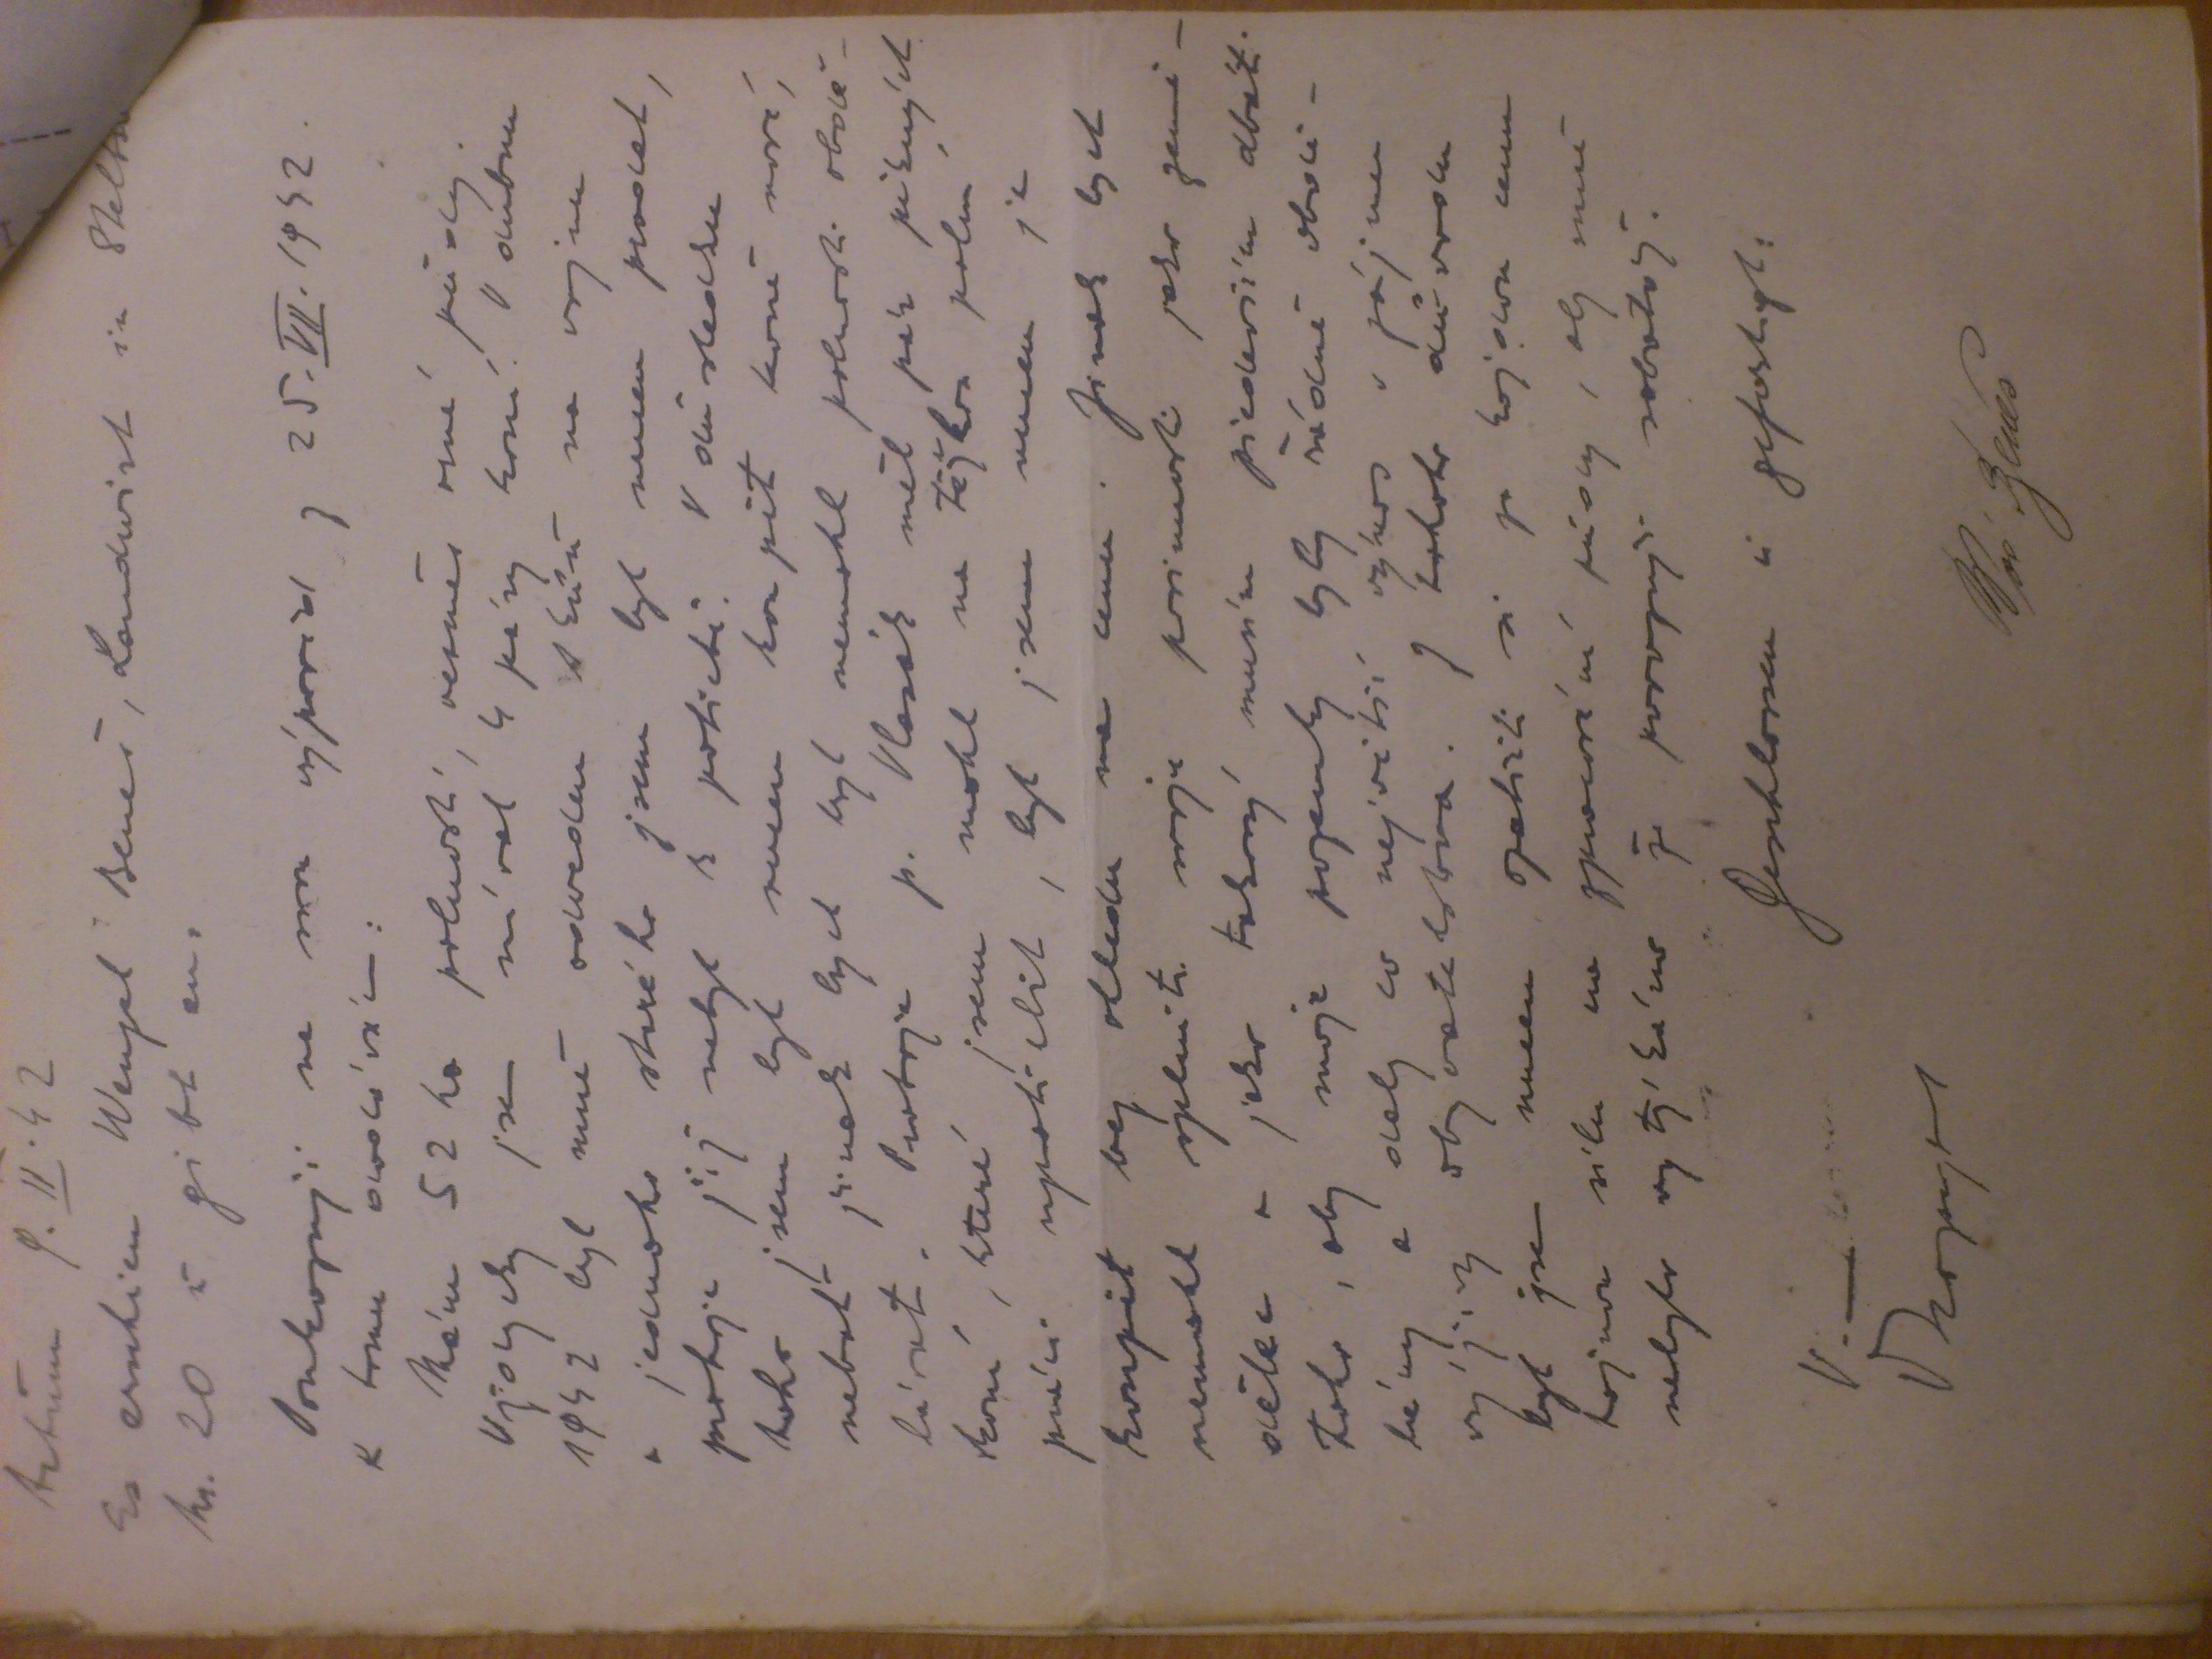 Actum 9. II. 42
Es erschien Wenzel Beneš, Landwirt in
Nr. 20 u gibt an:
Poukazuji na svou výpověď z 25. VII. 1942.
K tomu dodávám:
Mám 52 ha polností, vesměs orné půdy.
Vždycky jsem míval 4 páry koní. V dubnu
1942 byl mně odveden 1 kůň na vojnu
a jednoho starého jsem byl nucen prodat,
protože již nebyl k potřebě. V důsledku
toho jsem byl nucen koupit koně nové,
neboť jinak bych byl nemohl polnosti obdě-
lávat. Protože p. Vlasák měl pár pěkných
koní, které jsem mohl na těžkou polní
práci upotřebit, byl jsem nucen je
koupit bez ohledu na cenu. Jinak bych
nemohl splniti svoje povinnosti jako země-
dělec a jako takový musím především dbáti
toho, aby moje pozemky byly řádně obdě-
lány a daly co největší výnos v zájmu
výživy obyvatelstva. Z tohoto důvodu
byl jsem nucen opatřiti si za každou cenu
tažnou sílu na zpracování půdy, aby mně
nebylo vytýkáno že provozuji sabotáž.
Geschlossen u gefertigt:
Beneš